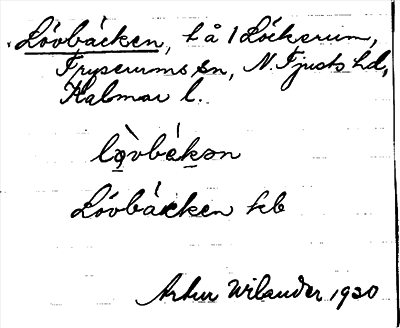 Lövbäcken, l å 1 Löckerum,
Tryserums sn, N. Tjusts hd,
Kalmar l.
lo̱vbekən
Lövbäcken kb
Artur Wilander 1920